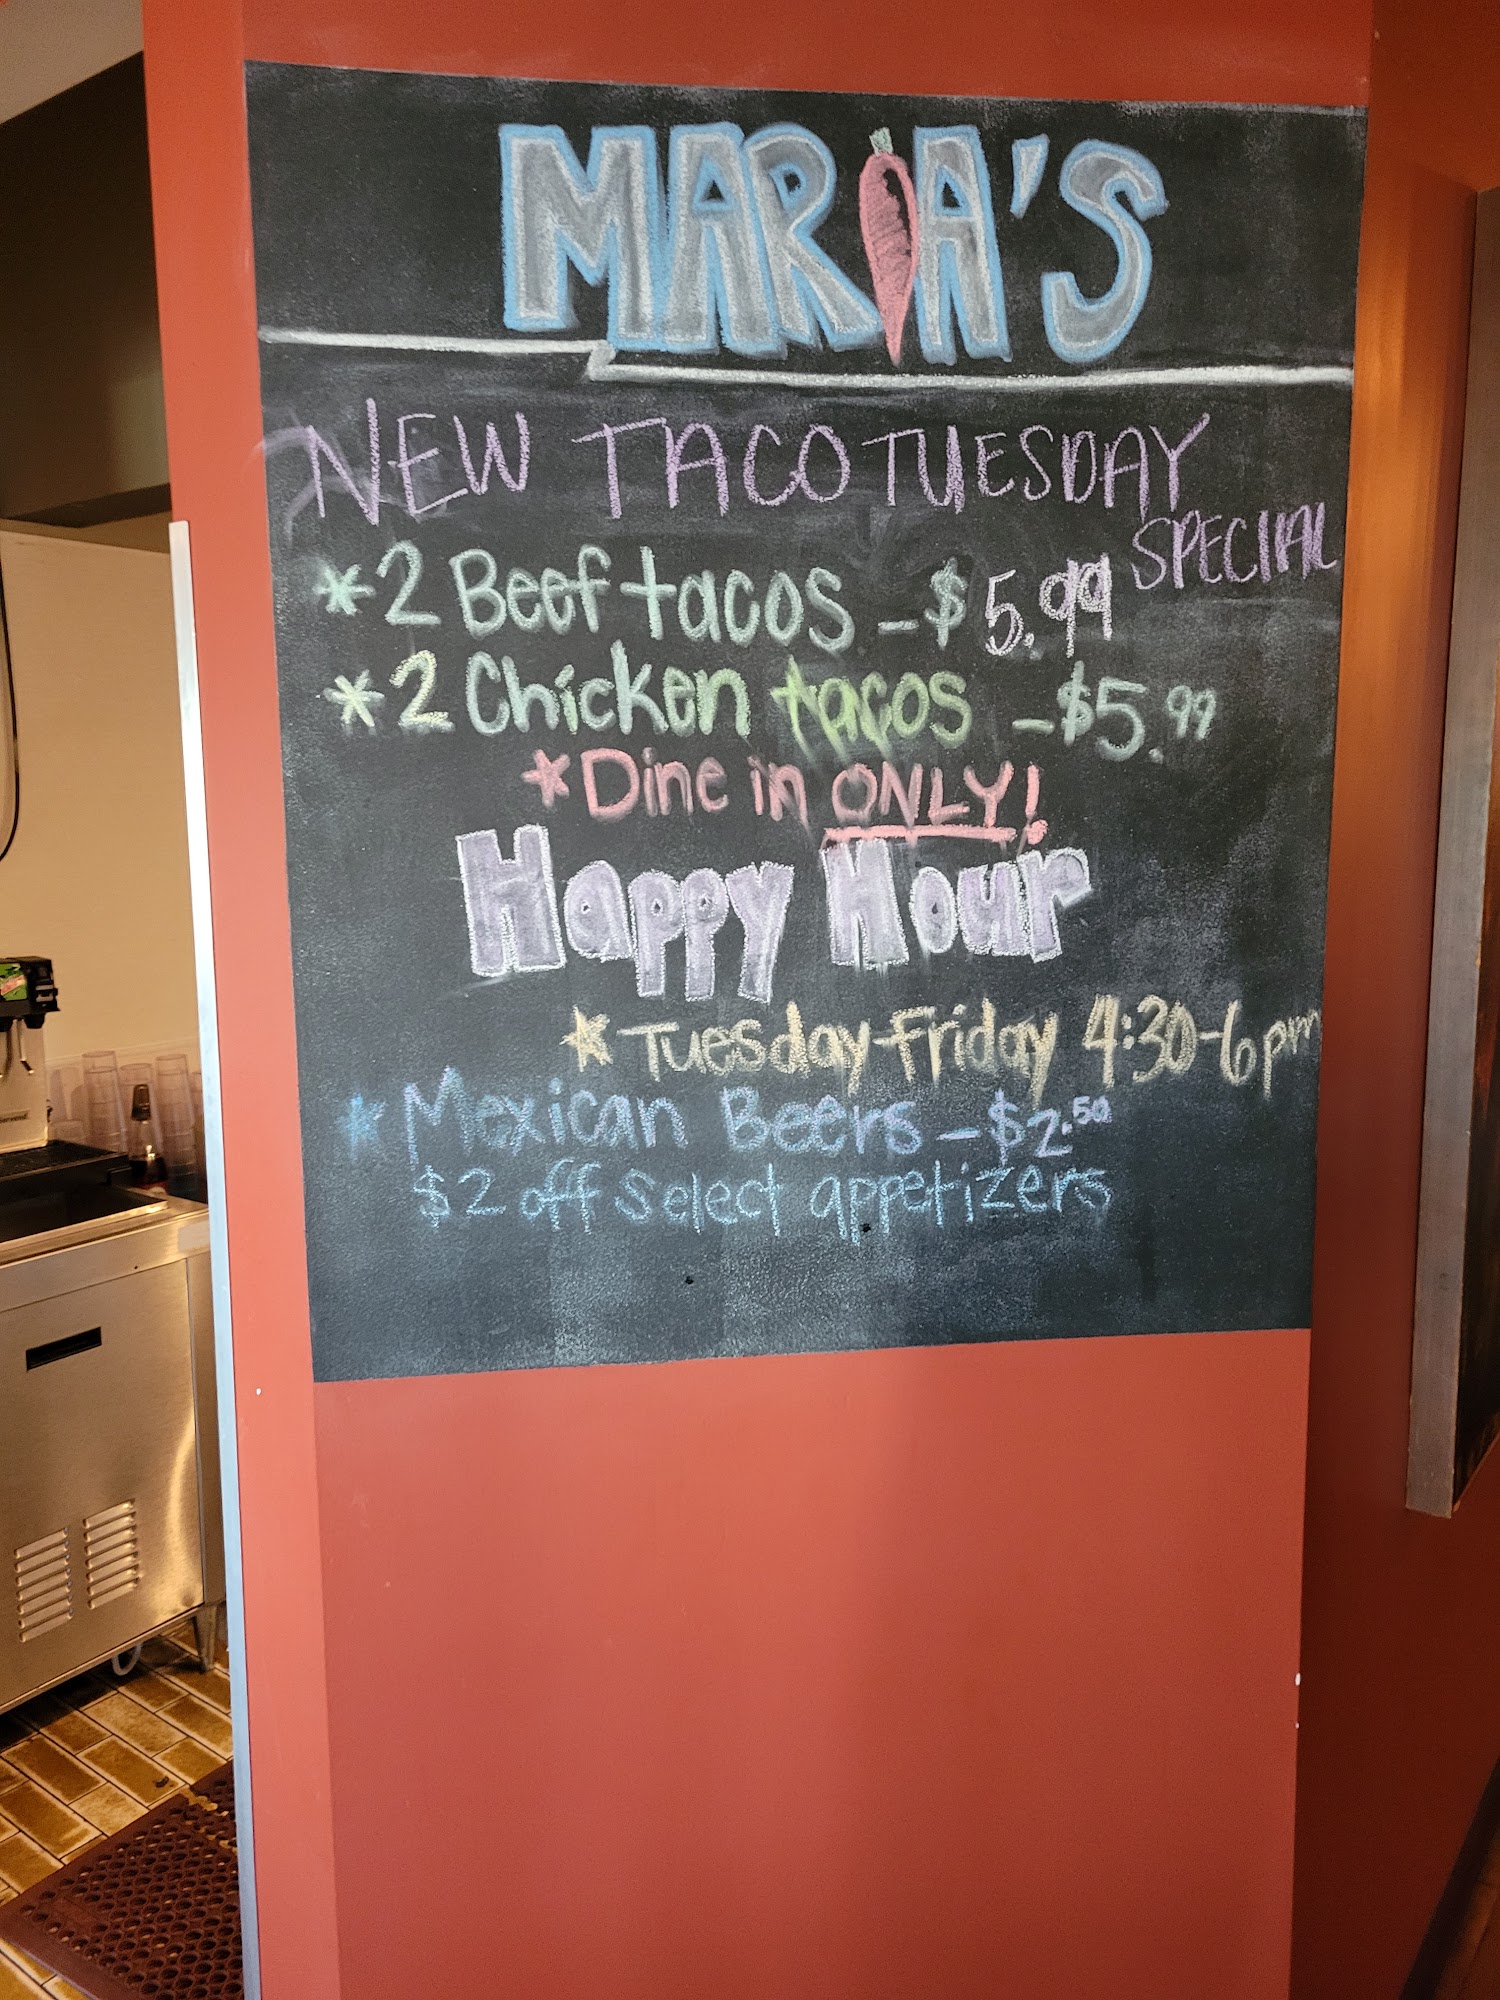 MARIA'S
NEW TACO TUESDAY
SPECIAL
*2 Beef tacos - $5.99
*2 Chicken tacos - $5.99
*Dine in ONLY!
Happy Hour
*Tuesday-Friday 4:30-6pm
*Mexican Beers - $2.50
$2 off select appetizers